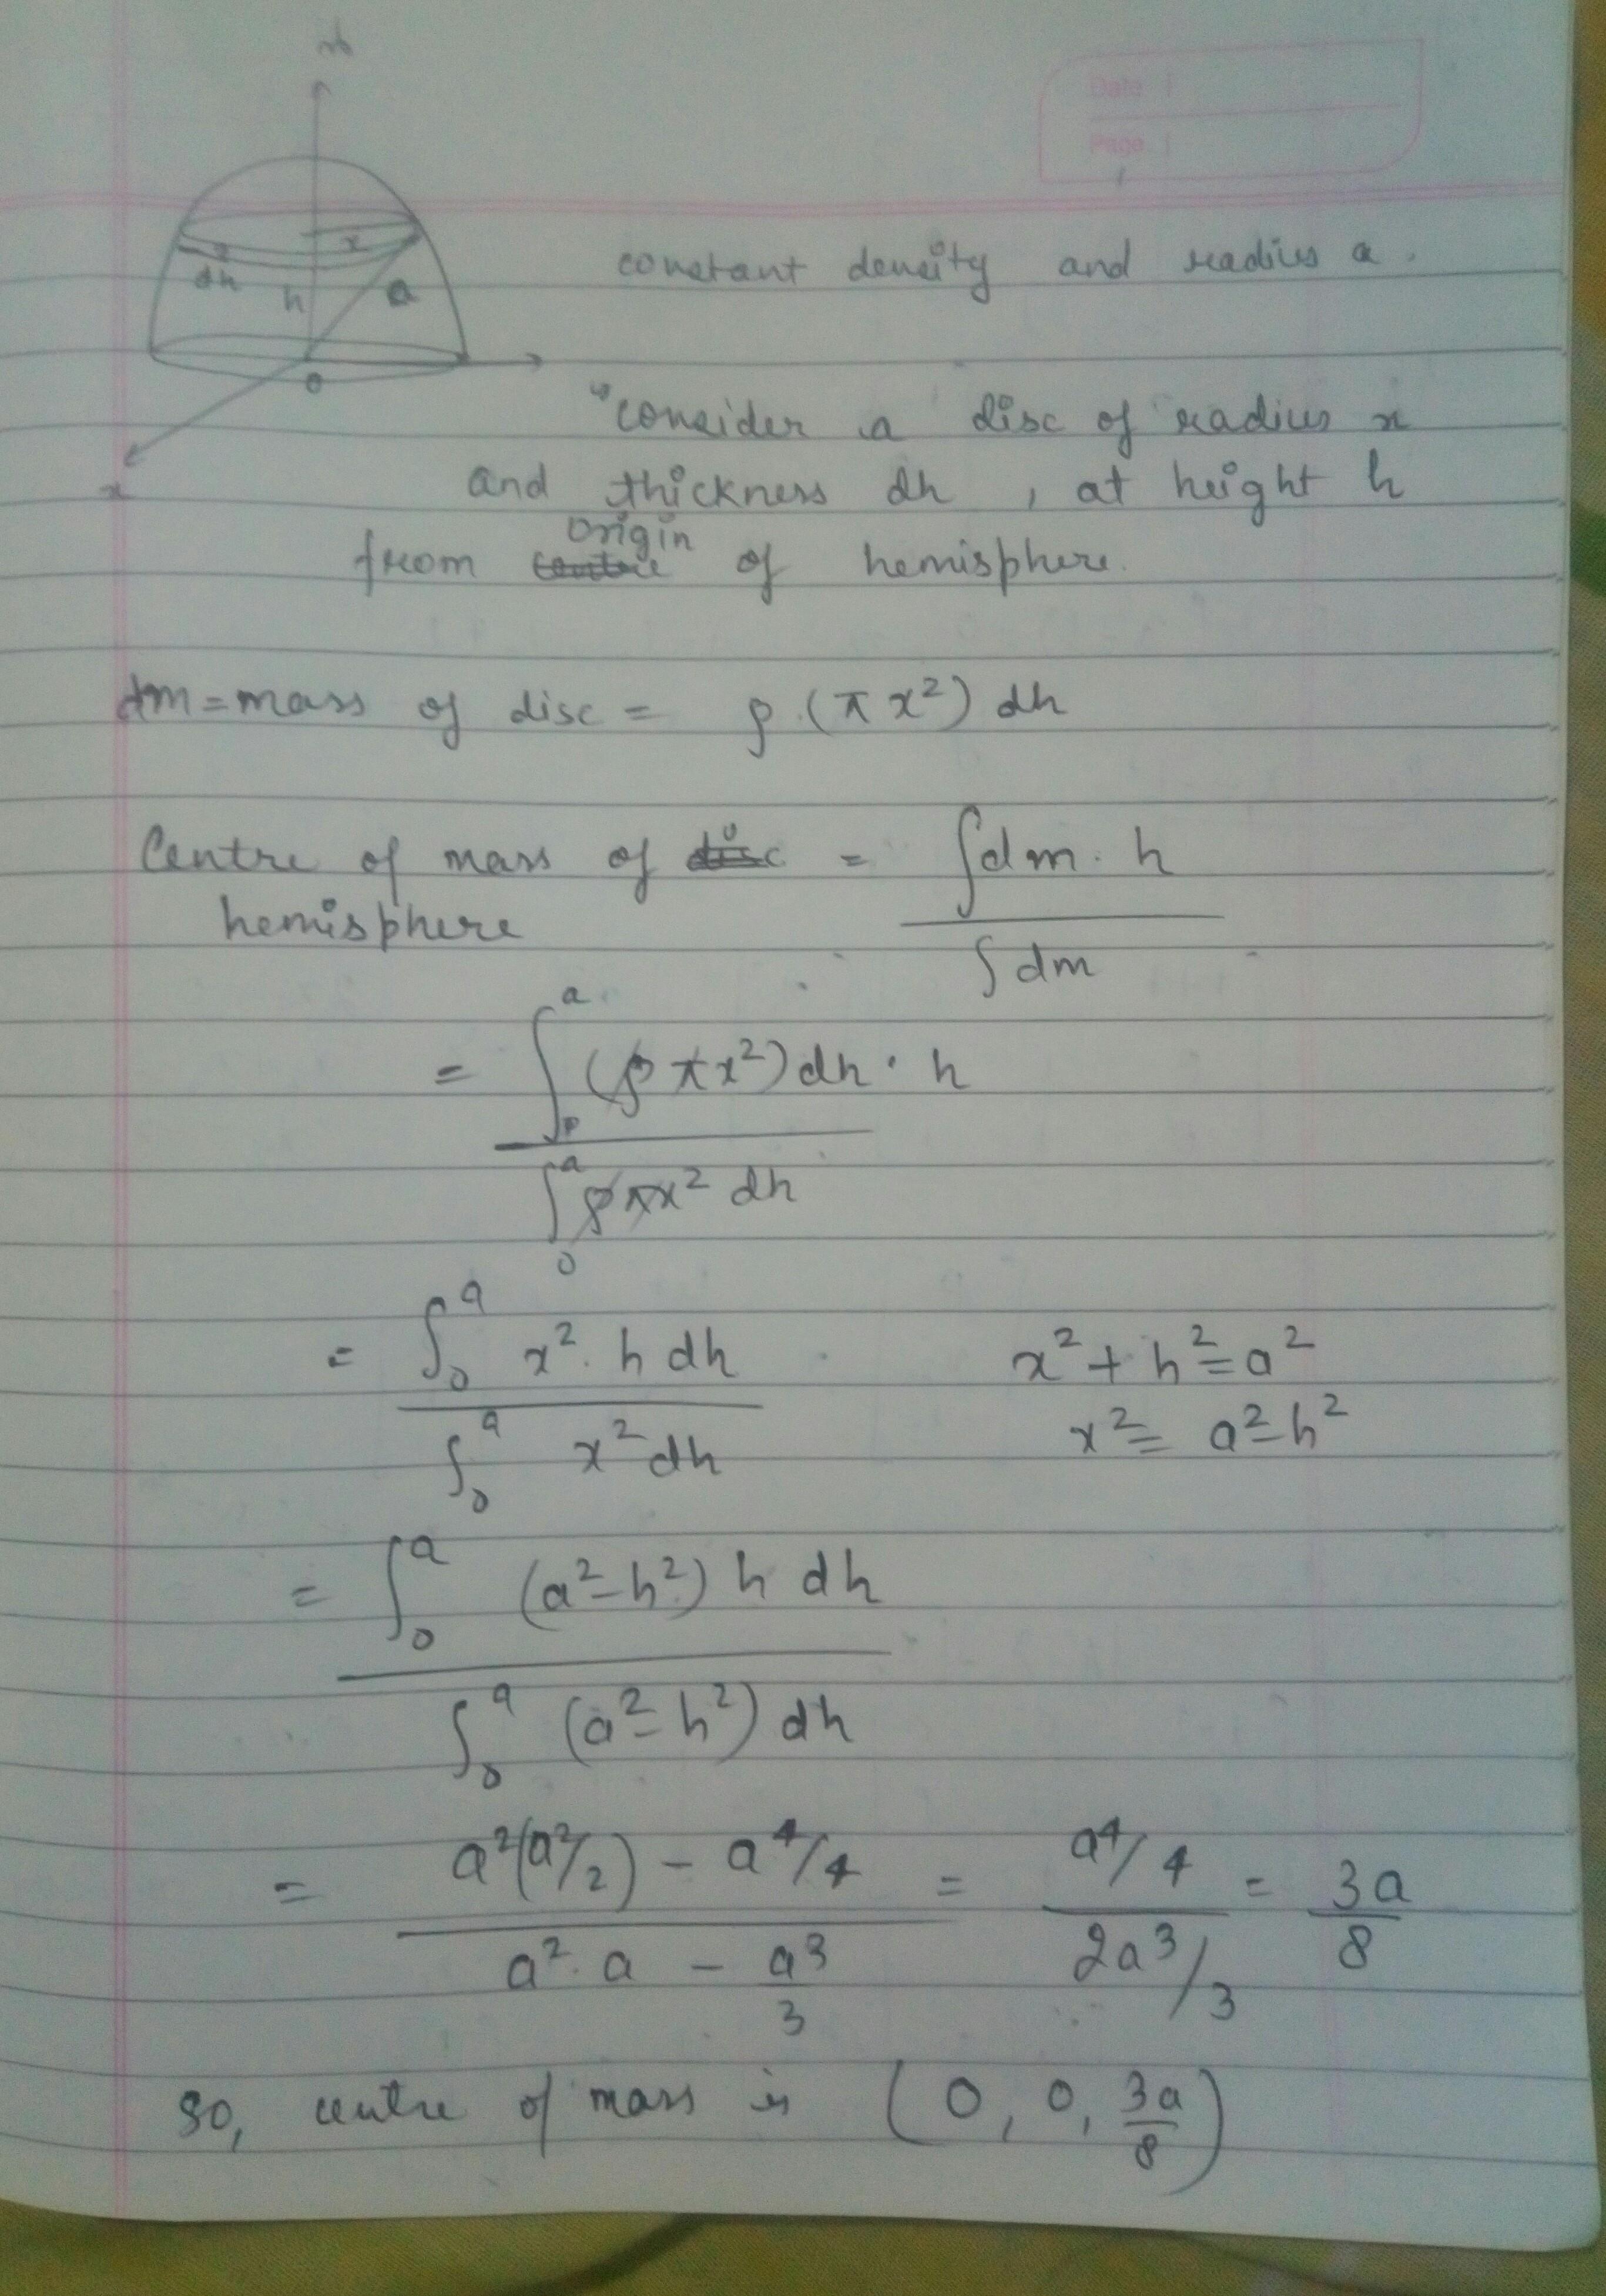 Date
Page
x
dh
h
a
0
x
constant density and radius a.
"consider a disc of radius x
and thickness dh, at height h
origin
from centre of hemisphere.
dm = mass of disc = ρ.(πx²) dh
Centre of mass of disc = ∫dm.h
hemisphere
∫dm
= ∫₀ᵃ (ρπx²)dh · h
∫₀ᵃ ρπx² dh
= ∫₀ᵃ x². h dh x² + h² = a²
∫₀ᵃ x² dh x² = a² - h²
= ∫₀ᵃ (a² - h²) h dh
∫₀ᵃ (a² - h²) dh
= a²(a²/2) - a⁴/4 = a⁴/4 = 3a
a². a - a³ 2a³/3 8
3
So, centre of mass is (0, 0, 3a/8)